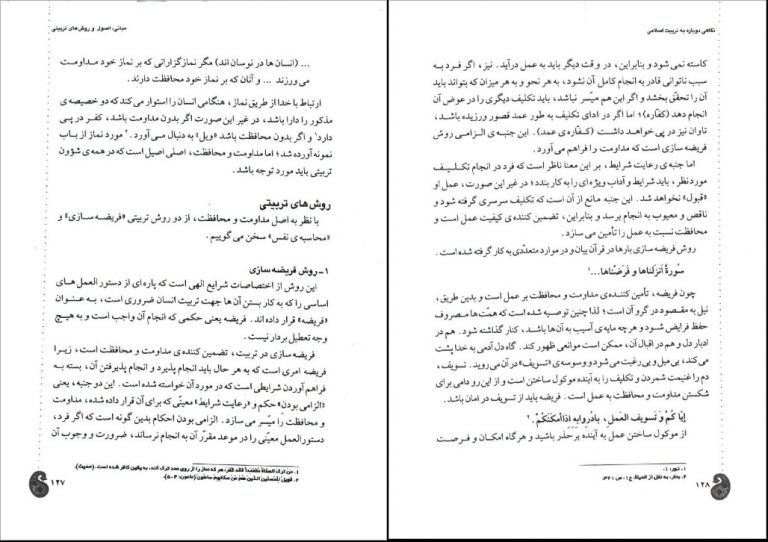 مبانی، اصول و روش‌های تربیتی
... (انسان‌ها در نوسان‌اند) مگر نمازگزارانی که بر نماز خود مداومت
می‌ورزند ... و آنان که بر نماز خود محافظت دارند.
ارتباط با خدا از طریق نماز، هنگامی انسان را استوار می‌کند که دو خصیصه‌ی
مذکور را دارا باشد، در غیر این صورت اگر بدون مداومت باشد، کفر در پی
دارد۱ و اگر بدون محافظت باشد «ویل» به دنبال می‌آورد.۲ مورد نماز از باب
نمونه آورده شد؛ اما مداومت و محافظت، اصلی اصیل است که در همه‌ی شؤون
تربیتی باید مورد توجه باشد.
روش‌های تربیتی
با نظر به اصل مداومت و محافظت، از دو روش تربیتی «فریضه سازی» و
«محاسبه‌ی نفس» سخن می‌گوییم.
۱ـ روش فریضه سازی
این روش از اختصاصات شرایع الهی است که پاره‌ای از دستورالعمل‌های
اساسی را که به کار بستن آن‌ها جهت تربیت انسان ضروری است، به عنوان
«فریضه» قرار داده‌اند. فریضه یعنی حکمی که انجام آن واجب است و به هیچ
وجه تعطیل بردار نیست.
فریضه سازی در تربیت، تضمین کننده‌ی مداومت و محافظت است، زیرا
فریضه امری است که به هر حال باید انجام پذیرد و انجام پذیرفتن آن، بسته به
فراهم آوردن شرایطی است که در مورد آن خواسته شده است. این دو جنبه، یعنی
«الزامی بودن» حکم و «رعایت شرایط» معیّنی که برای آن قرار داده شده، مداومت
و محافظت را میسر می‌سازد. الزامی بودن احکام بدین گونه است که اگر فرد،
دستورالعمل معیّنی را در موعد مقرّر آن به انجام نرساند، ضرورت و وجوب آن
۱- من ترک الصلاة متعمداً فقد کفر، هر که نماز را از روی عمد ترک کند، به یقین کافر شده است. (حدیث)
۲- فویل للمصلین الذین هم عن صلاتهم ساهون (ماعون، ۴-۵)
۱۲۷
نگاهی دوباره به تربیت اسلامی
کاسته نمی‌شود و بنابراین، در وقت دیگر باید به عمل درآید. نیز، اگر فرد به
سبب ناتوانی قادر به انجام کامل آن نشود، به هر نحو و به هر میزان که بتواند باید
آن را تحقق بخشد و اگر این هم میسّر نباشد، باید تکلیف دیگری را در عوض آن
انجام دهد (کفّاره)؛ اما اگر در ادای تکلیف به طور عمد قصور ورزیده باشد،
تاوان نیز در پی خواهد داشت (کفّاره‌ی عمد). این جنبه‌ی الزامی روش
فریضه سازی است که مداومت را فراهم می‌آورد.
اما جنبه‌ی رعایت شرایط، بر این معنا ناظر است که فرد در انجام تکلیف
مورد نظر، باید شرایط و آداب ویژه‌ای را به کار بندد؛ در غیر این صورت، عمل او
«قبول» نخواهد شد. این جنبه مانع از آن است که تکلیف سرسری گرفته شود و
ناقص و معیوب به انجام برسد و بنابراین، تضمین کننده‌ی کیفیت عمل است و
محافظت نسبت به عمل را تأمین می‌سازد.
روش فریضه سازی بارها در قرآن بیان و در موارد متعدّدی به کار گرفته شده است.
سُورَةٌ اَنزَلناها و فَرَضناها...۱
چون فریضه، تأمین کننده‌ی مداومت و محافظت بر عمل است و بدین طریق،
نیل به مقصود در گرو آن است؛ لذا چنین توصیه شده است که همّت‌ها مصروف
حفظ فرایض شود و هر چه مایه‌ی آسیب به آن‌ها باشد، کنار گذاشته شود. هم در
ادبار دل و هم در اقبال آن، ممکن است موانعی ظهور کند. گاه دل آدمی به خدا پشت
می‌کند، بی‌میل و بی‌رغبت می‌شود و وسوسه‌ی «تسویف» در آن می‌روید. تسویف،
دم را غنیمت شمردن و تکلیف را به آینده موکول ساختن است و از این رو دامی برای
شکستن مداومت و محافظت به عمل است. فریضه باید از تسویف در امان باشد.
إیّا کُمْ وَ تَسویف العَمَلِ، بادُروابِهِ إذا أمکَنَکُمْ.۲
از موکول ساختن عمل به آینده برحذر باشید و هرگاه امکان و فرصت
۱ـ نور؛ ۱.
۲ـ بحار، به نقل از الحیاة، ج ۱، ص ۳۲۱.
۱۲۸